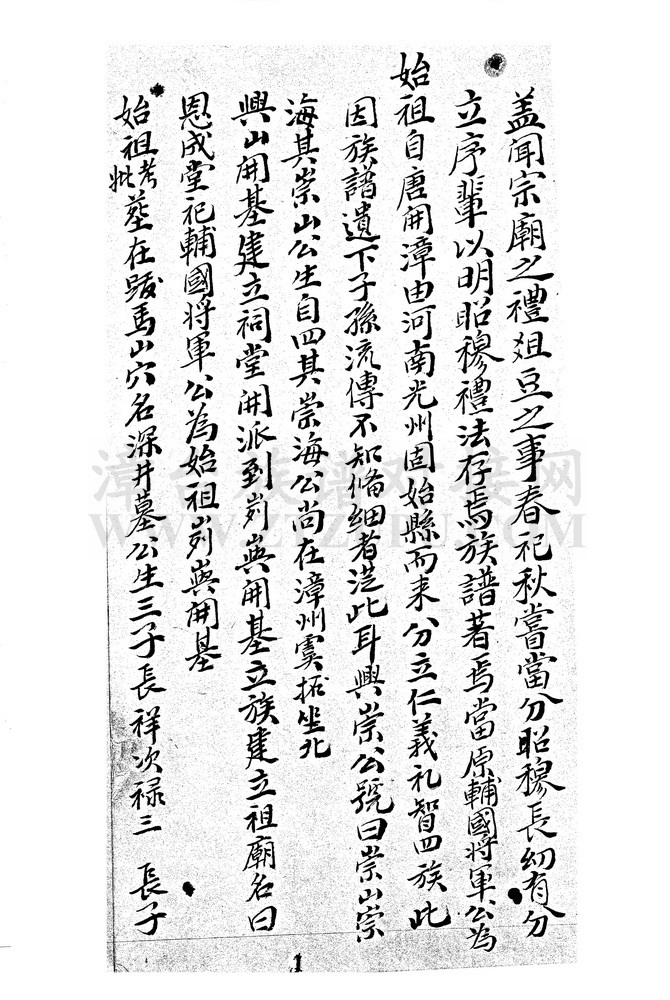 盖聞宗廟之禮俎豆之事春祀秋嘗當分昭穆長幼有分
立序輩以明昭穆禮法存焉族譜著焉當原輔國將軍公為
始祖自唐開漳由河南光州固始縣而来分立仁義礼智四族此
因族譜遺下子孫流傳不知俻細者涖此耳興崇公號曰崇山崇
海其崇山公生自四其崇海公尚在漳州霞拓坐北
興山開基建立祠堂開派到峛㠘開基立族建立祖廟名曰
恩成堂祀輔國将軍公為始祖峛㠘開基
始祖考妣塟在跋馬山穴名深井墓公生三子長祥次禄三 長子
漳台族谱对接网
WWW.ZTZUPU.COM
1